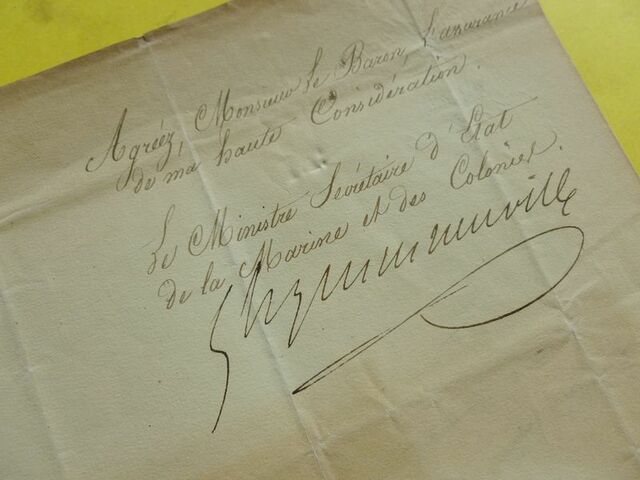 Agréez, Monsieur Le Baron, l'assurance
de ma haute Considération.
Le Ministre Secrétaire d'Etat
de la Marine et des Colonies.